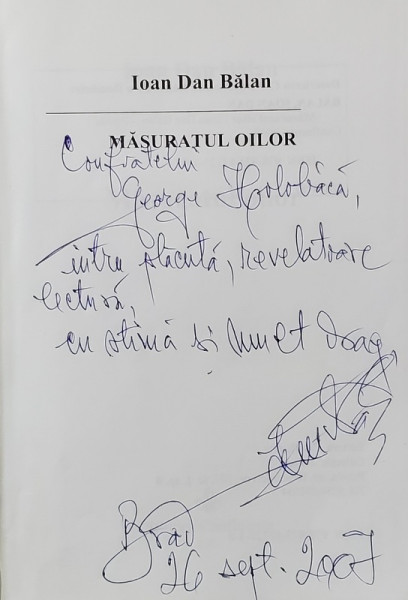 Ioan Dan Bălan
MĂSURATUL OILOR
Confratelui
George Holobâcă,
întru plăcută, revelatoare
lectură,
cu stimă și mult drag
Brad
26 sept. 2007